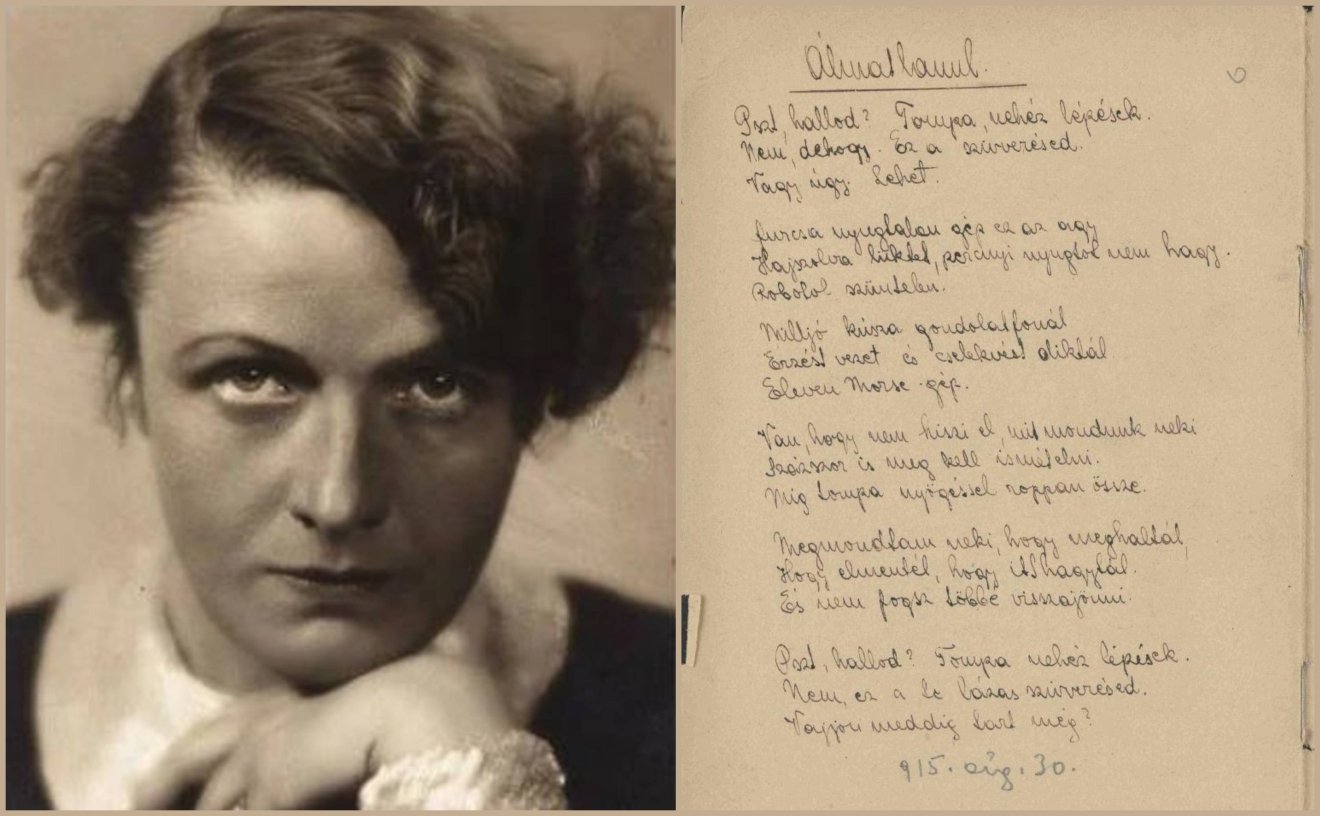 Álmatlanul.
Pszt, hallod? Tompa, nehéz lépések.
Nem, dehogy. Ez a szívverésed.
Vagy úgy. Lehet.
furcsa nyugtalan gép ez az agy
Hajszolva lüktet, percnyi nyugtot nem hagy.
Robotol szüntelen.
Milljó kúsza gondolatfonál
Érzést vezet és cselekvést diktál
Eleven Morse-gép.
Van, hogy nem hiszi el, mit mondunk neki
Százszor is meg kell ismételni.
Míg tompa nyögéssel roppan össze.
Megmondtam neki, hogy meghaltál,
Hogy elmentél, hogy itthagytál.
És nem fogsz többé visszajönni.
Pszt, hallod? Tompa nehéz lépések.
Nem, ez a te lázas szívverésed.
Vajjon meddig tart még?
915. aúg. 30.